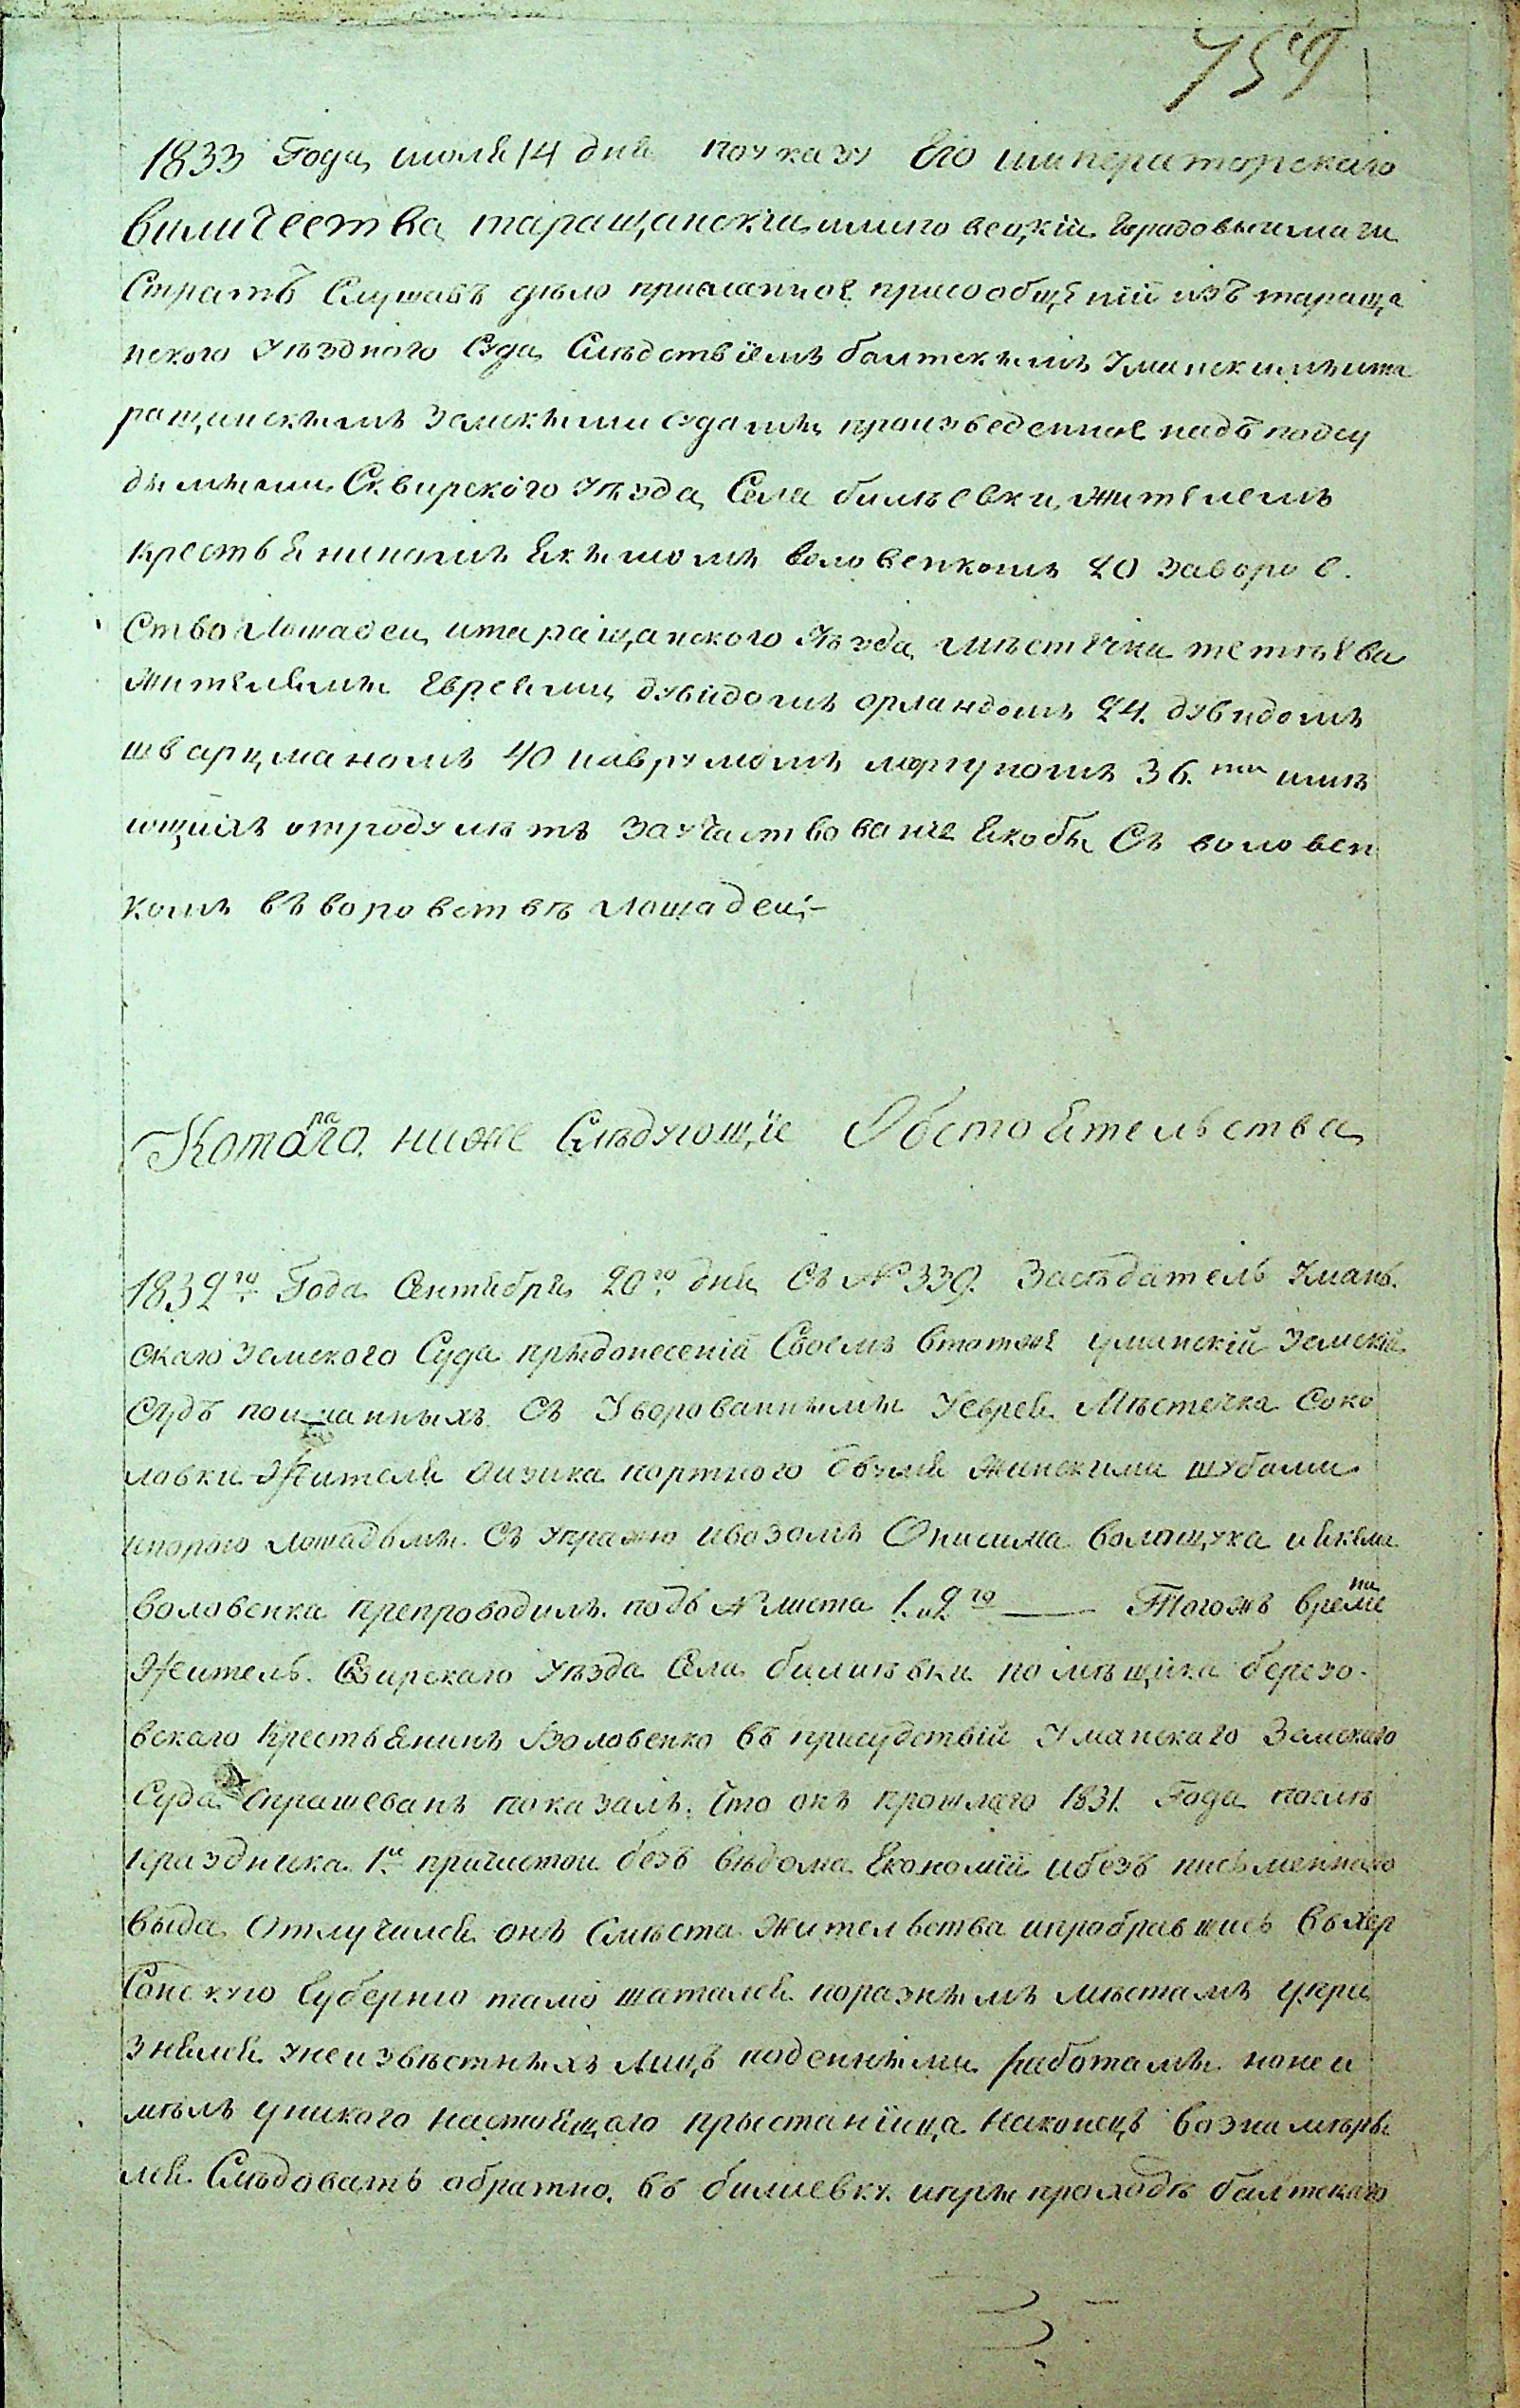 759
1833 Года июля 14 дня поуказу Его императорскаго
виличества таращанскии градовыи маги
Стратъ Слушавъ дѣло присланное присообщѣнїи изъ тараща
нского Уѣздного Суда Слѣдствїемъ балтскимъ Уманскимъ ита
ращанскимъ Земскими судами произведенное надъ подсу
димыми Сквирскѡго уѣзда Села билѣевки жителемъ
крестьяниномъ Якимомъ воловенкомъ 20 заворов
Ство Лошадеи итаращанского Уѣзда мѣстечка тетіева
жителями евреями дувидомъ орландомъ 24. дувидомъ
шварцманомъ 40 иаврумомъ моргуномъ 36. ти имѣ
ющихъ отроду лѣтъ заучаствованїе якобы Съ воловен
комъ въ воровствѣ лошадеи;-
Котораго ниже Слѣдующїе Обстоятельства
1832го Года Сентября 20го дня Съ № 339. Засѣдатель Уман.
скаго земского Суда прыдонесенїи Своемъ втотже уманскїй Земскїй
Судъ поиманныхъ Съ Уворованными Уеврея Мѣстечка Соко
ловки Жителя Аизика портного двумя жинскими шубами
ипарою лошадьми Съ упряжю ивозомъ Онисима волощука иякима
воловенка препроводилъ. подъ № листа 1. и 2го — Тогожъ времени
Житель Сквирскаго уѣзда Села билиѣвки помѣщика березо-
вскаго Крестьянинъ Воловенко въ присудствїи Уманскаго Земскаго
Суда Спрашеванъ показалъ. Что онъ прошлаго 1831. Года послѣ
праздника 1й причистои безъ вѣдома Економїи ибезъ письменнаго
выда Отлучился онъ Смѣста Жительства ипробравшись въ Хер
Сонскую Губернїю тамо шатался поразнымъ мѣстамъ упра
знялся унеизвѣстныхъ лицъ поденными работами нонеи
мѣлъ уникого настоящаго прыстанїща наконецъ вознамѣрив
ся Слѣдовать обратно. въ билиевку ипры проходѣ балтскаго